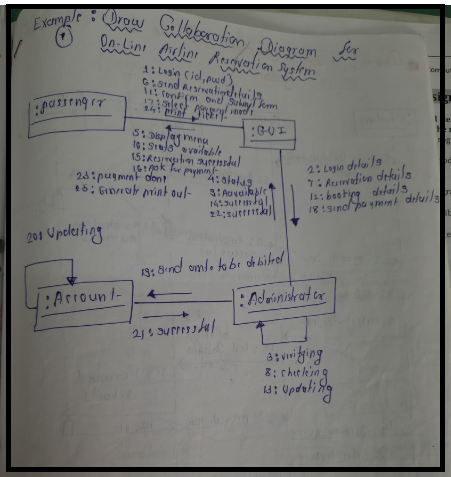 Example: Draw Collaboration Diagram for
1
On-Line Airline Reservation System
1: Login (id, pwd)
6: Send Reservation details
11: confirm and Submit form
17: Select payment mode
24: print ticket
:passenger
:GUI
5: Display menu
10: Seats available
15: Reservation successful
16: Ask for payment
23: payment done
25: Generate print out
4: Status
9: Available
14: successful
22: successful
2: Login details
7: Reservation details
12: booking details
18: Send payment details
20: Updating
19: Send amt. to be debited
:Account
:Administrator
21: successful
3: Verifying
8: checking
13: Updating